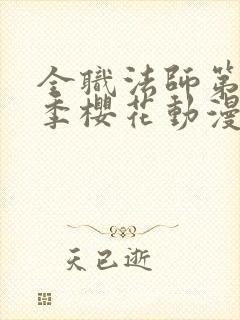 全職法師第
季櫻花動漫
天已逝